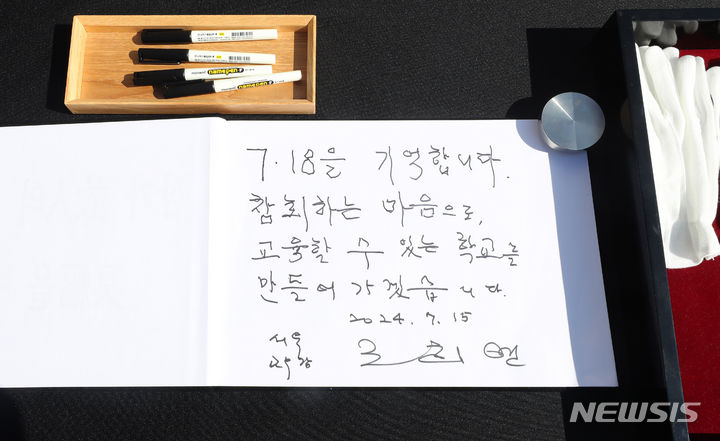 namepen F
namepen F
7.18을 기억합니다.
참회하는 마음으로,
교육할 수 있는 학교를
만들어 가겠습니다.
2024. 7. 15
서울
교육감 조희연
NEWSIS